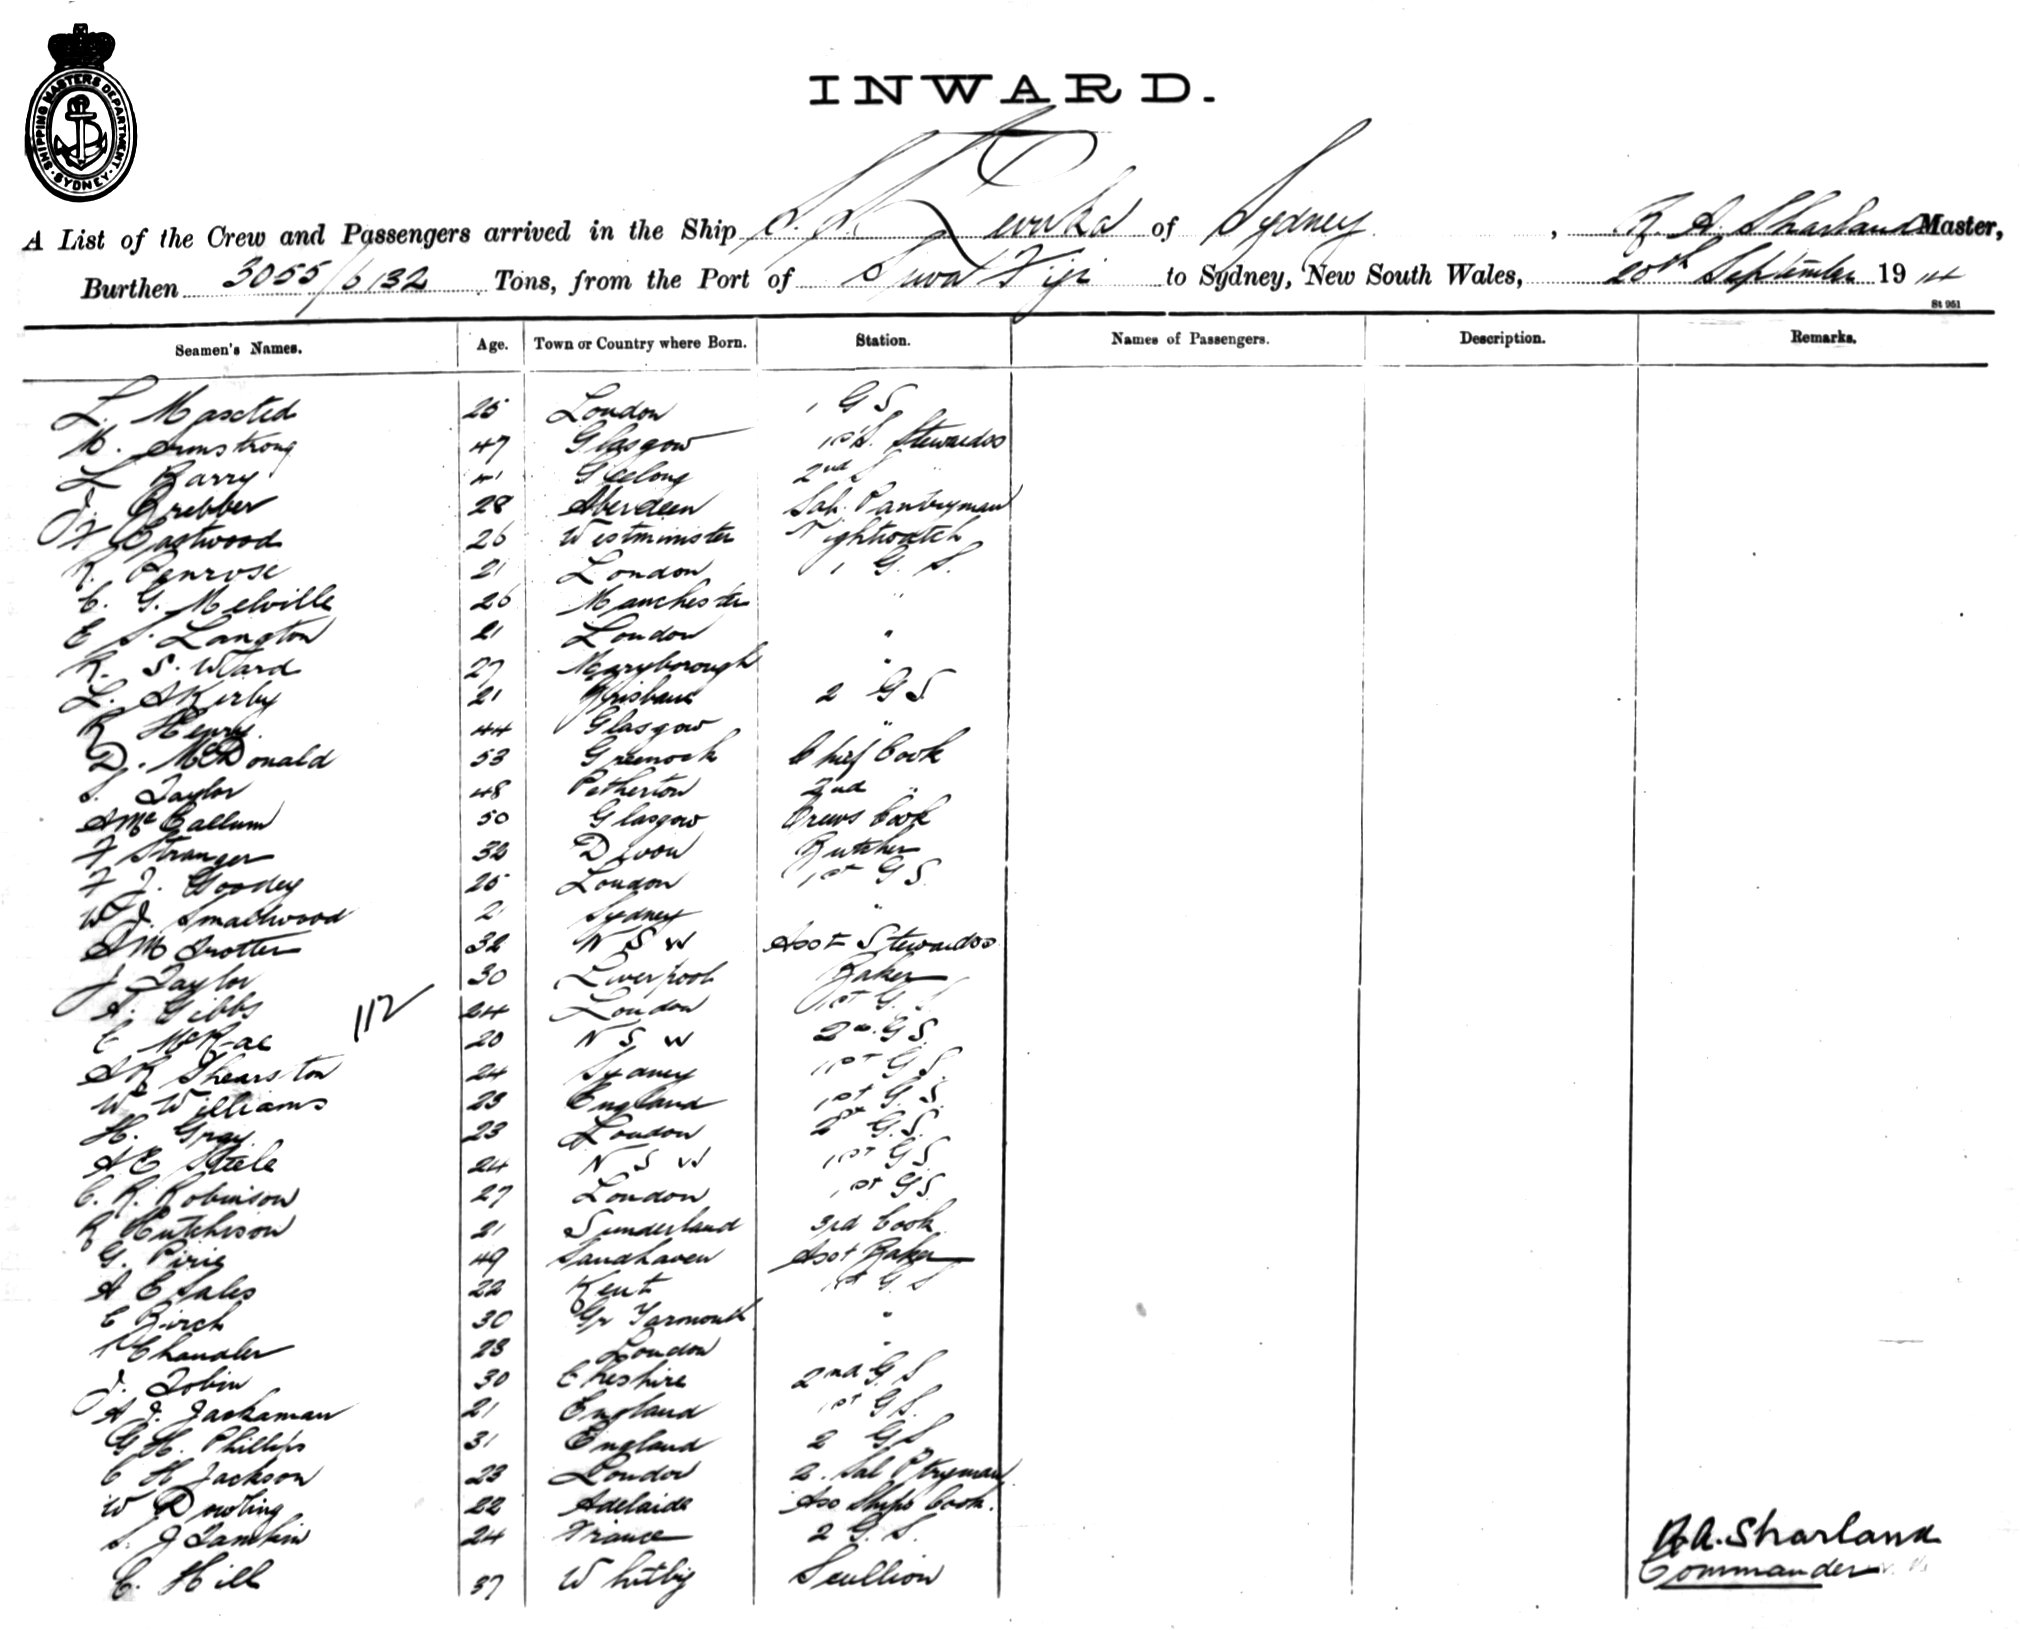 SHIPPING MASTERS DEPARTMENT
SYDNEY
INWARD.
A List of the Crew and Passengers arrived in the Ship S.S. Levuka of Sydney, R. A. Sharland Master,
Burthen 3055/6132 Tons, from the Port of Suva Fiji to Sydney, New South Wales, 20th September 1914
St 951
Seamen's Names. Age. Town or Country where Born. Station. Names of Passengers. Description. Remarks.
L. Maxted 25 London 1 G S
M. Armstrong 47 Glasgow 1st S. Stewardss
L Barry 41 Geelong 2nd
J. Brebber 28 Aberdeen Sal. Pantryman
F Eastwood 26 Westminister Nightwatch
R. Penrose 21 London 1 G. S.
C. G. Melville 26 Manchester "
E S. Langton 21 London "
R. S. Ward 27 Maryborough "
L. A Kirby 21 Brisbane 2 G S
R Henry. 44 Glasgow "
D. McDonald 53 Greenock Chief Cook
S. Taylor 48 Petherton 2nd "
A Mc Callum 50 Glasgow Crews Cook
F Stranger 32 Devon Butcher
F J. Goodey 25 London 1st G S.
W J. Smallwood 21 Sydney "
A M Trotter 32 N S W Asst Stewardss
J Taylor 30 Liverpool Baker
A. Gibbs 24 London 1st G. S
112
C McRae 20 N S W 2nd. G S.
A R Shearston 24 Sydney 1st G S.
W Williams 23 England 1st G. S.
H. Gray. 23 London 2nd G. S.
A E Steele 24 N S W 1st G S.
C. R. Robinson 27 London 1st G S.
R Hutchison 21 Sunderland 3rd Cook
G. Pirie 49 Sandhaven Asst Baker
A E Sales 22 Kent 1st G. S
C Birch 30 Gr Yarmouth "
Chandler 23 London "
J. Tobin 30 Cheshire 2nd G. S
A J. Jackaman 21 England 1st G S.
G H. Phillips 31 England 2 G S
C H Jackson 23 London 2. Sal Ptryman
W Dowling 22 Adelaide Ass Ships Cook.
S. J Lambin 24 France 2 G. S.
C. Hill 37 Whitby Scullion
R A. Sharland
Commander